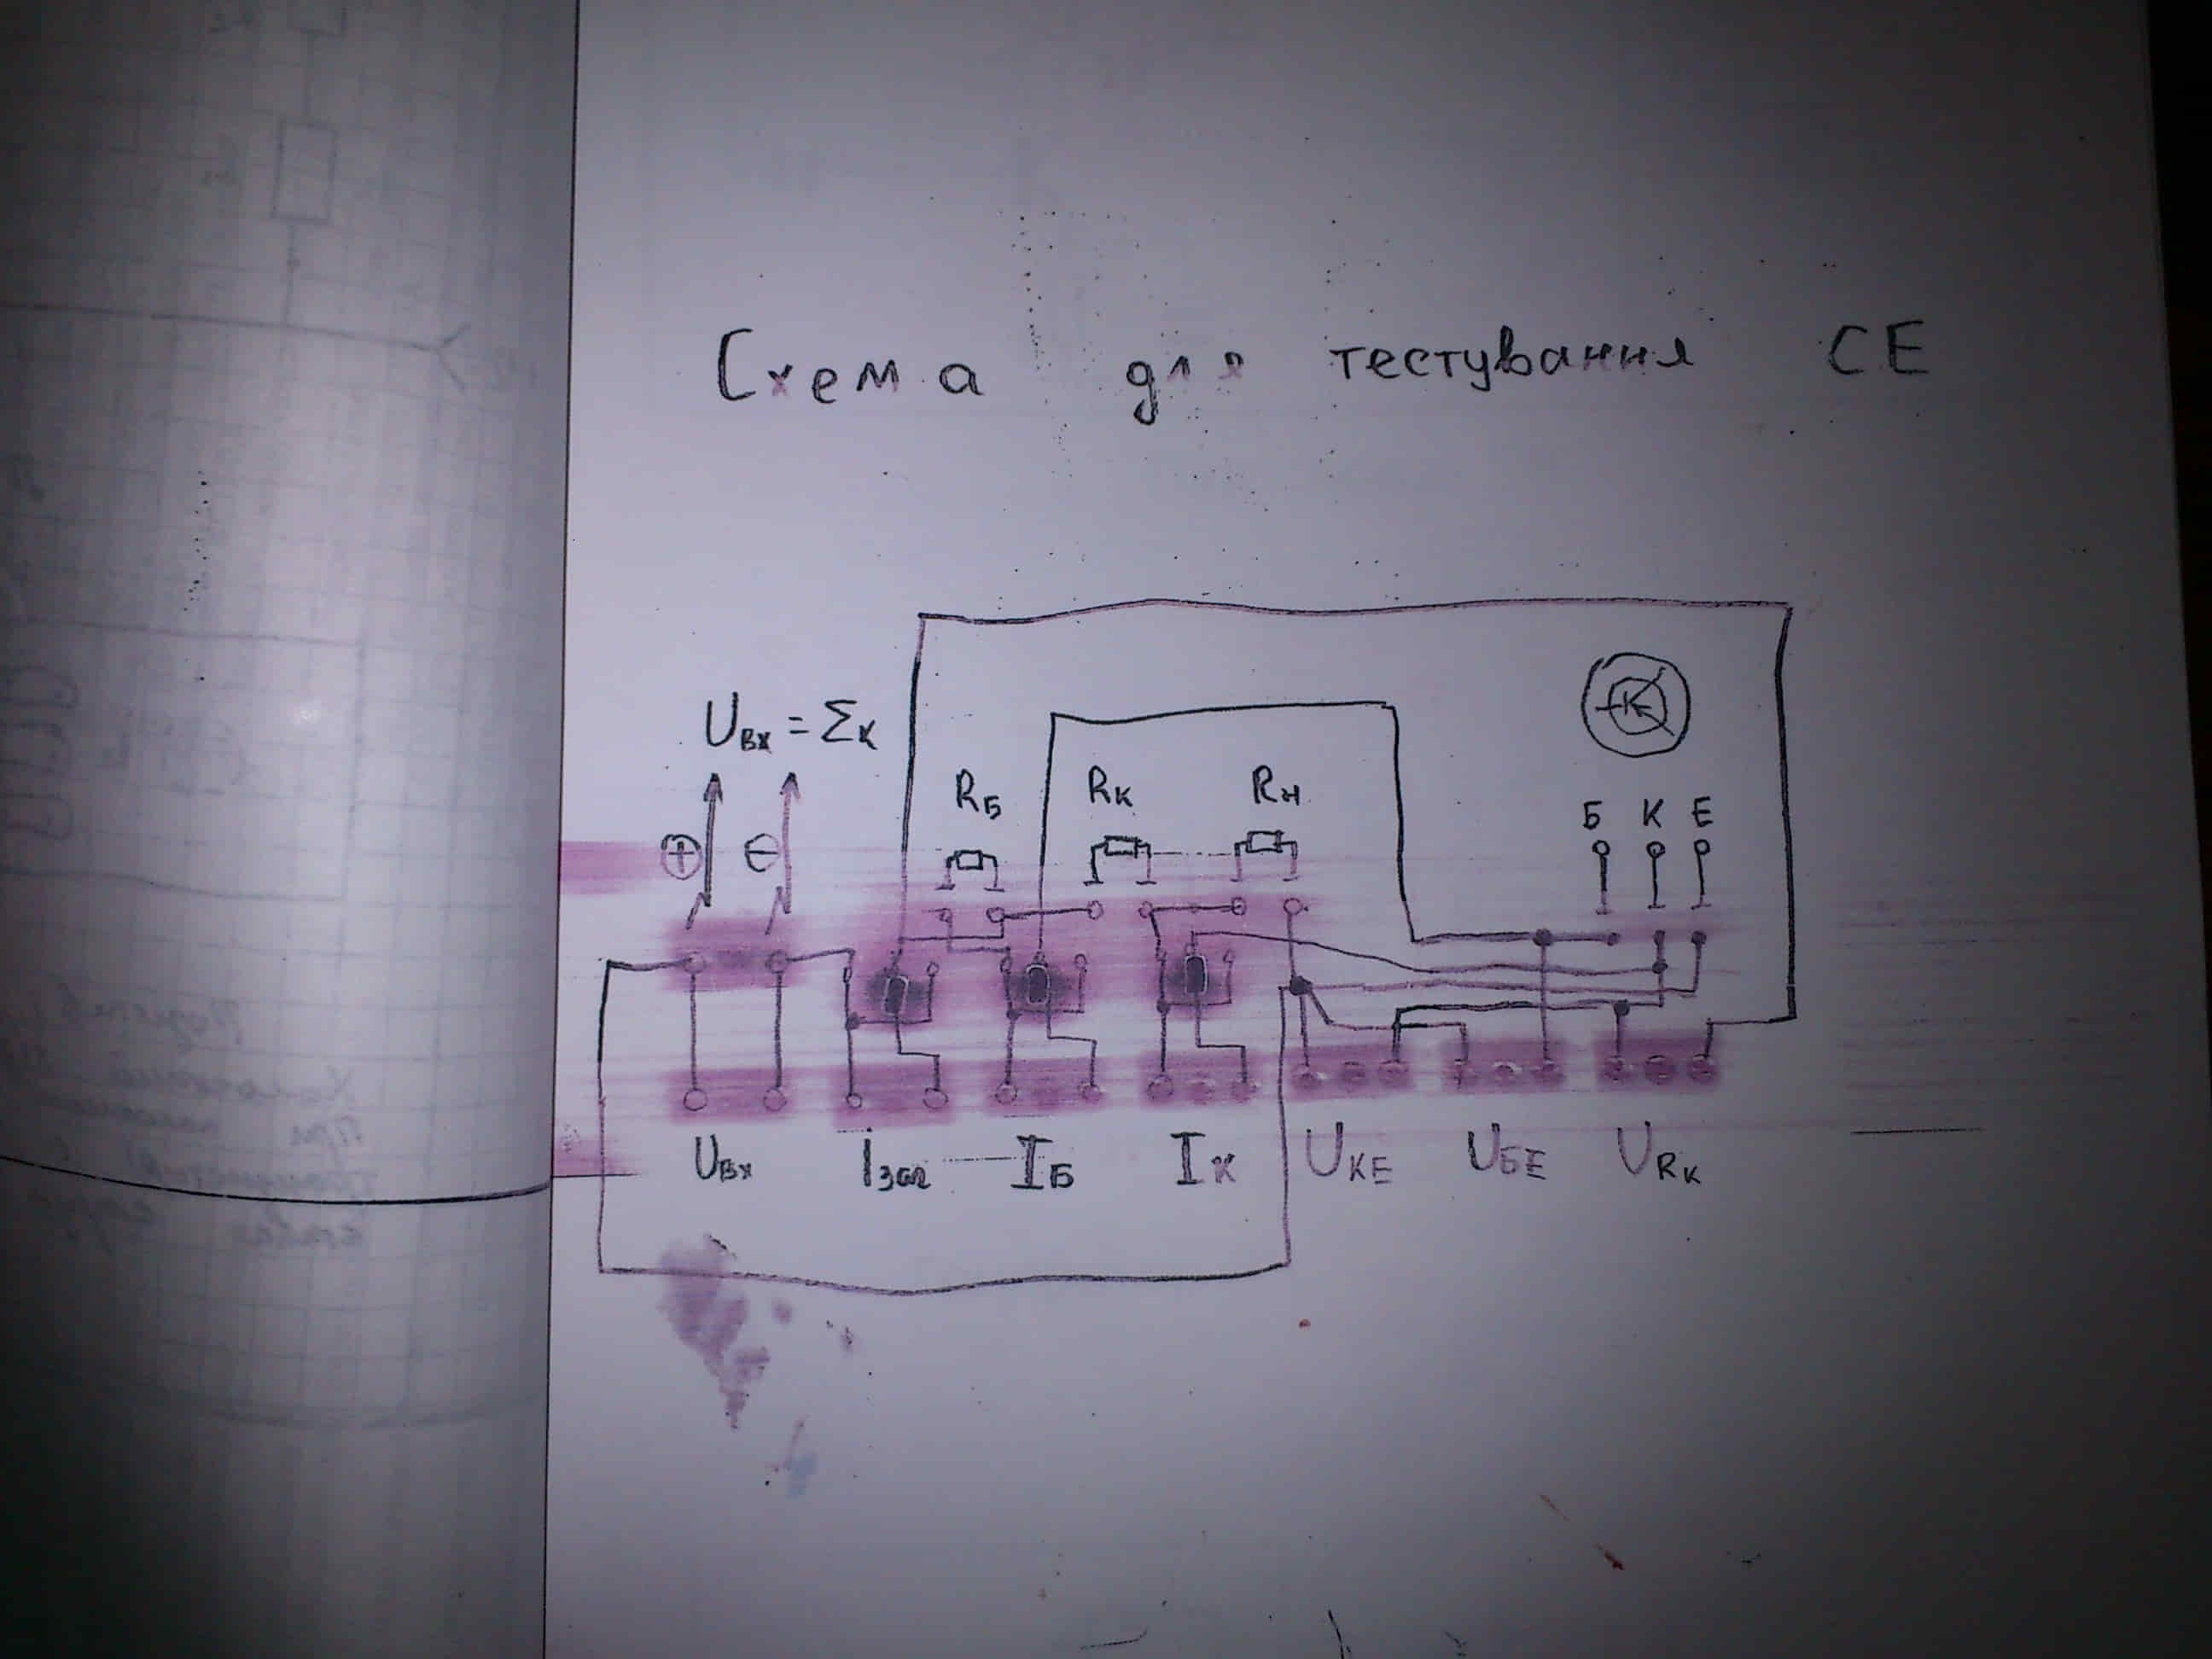 Схема для тестування СЕ
Uвх = Σк
⊕ ⊖
RБ Rк Rн
Б К Е
Uвх Iзаг IБ Iк UКЕ UБЕ URк